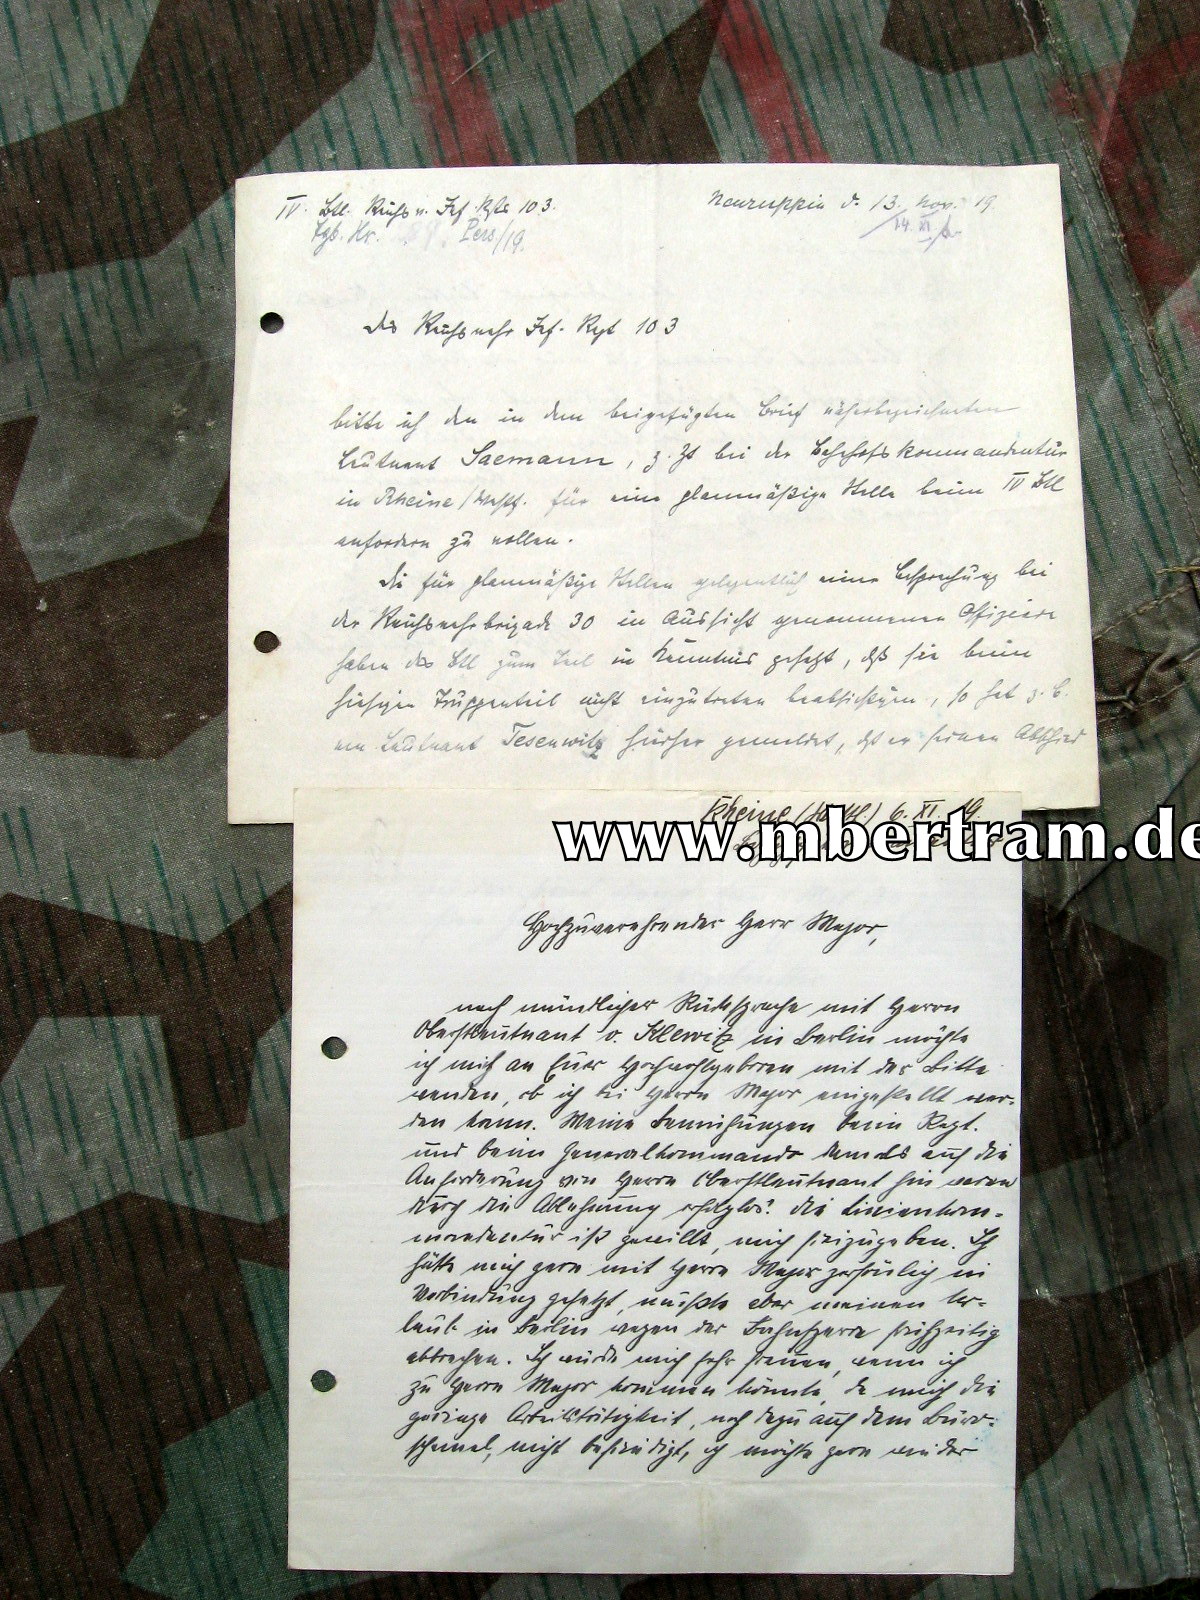 IV. Btl. Reichsw. Inf. Rgts 103.
Tgb. Nr. Pers/19.
Neuruppin d. 13. Nov. 19
14. XI.
Das Reichswehr Inf. Rgt 103
bitte ich den in dem beigefügten Brief näherbezeichneten
Leutnant Saemann, z. Zt bei der Bahnhofskommandantur
in Rheine/Westf. für eine planmäßige Stelle beim IV Btl
anfordern zu wollen.
Die für planmäßige Stellen gelegentlich einer Besprechung bei
der Reichswehrbrigade 30 in Aussicht genommenen Offiziere
haben das Btl zum Teil in Kenntnis gesetzt, daß sie beim
hiesigen Truppenteil nicht einzutreten beabsichtigen, so hat z. B.
Leutnant Tesenwitz hierher gemeldet, daß er seinen Abschied
Rheine (Westf.) 6. XI. 19.
www.mbertram.de
Hochzuverehrender Herr Major,
nach mündlicher Rücksprache mit Herrn
Oberstleutnant v. Klewitz in Berlin möchte
ich mich an Euer Hochwohlgeboren mit der Bitte
wenden, ob ich bei Herrn Major eingestellt wer-
den kann. Meine Bemühungen beim Regt.
und beim Generalkommando damals auf die
Anforderung von Herrn Oberstleutnant hin waren
durch die Ablehnung erfolglos. Die Linienkom-
mandantur ist gewillt, mich freizugeben. Ich
hätte mich gern mit Herrn Major persönlich in
Verbindung gesetzt, mußte aber meinen Ur-
laub in Berlin wegen der Bahnsperre frühzeitig
abbrechen. Ich würde mich sehr freuen, wenn ich
zu Herrn Major kommen könnte, da mich die
geringe Arbeitstätigkeit, noch dazu auf dem Büro-
schemel, nicht befriedigt, ich möchte gern wieder